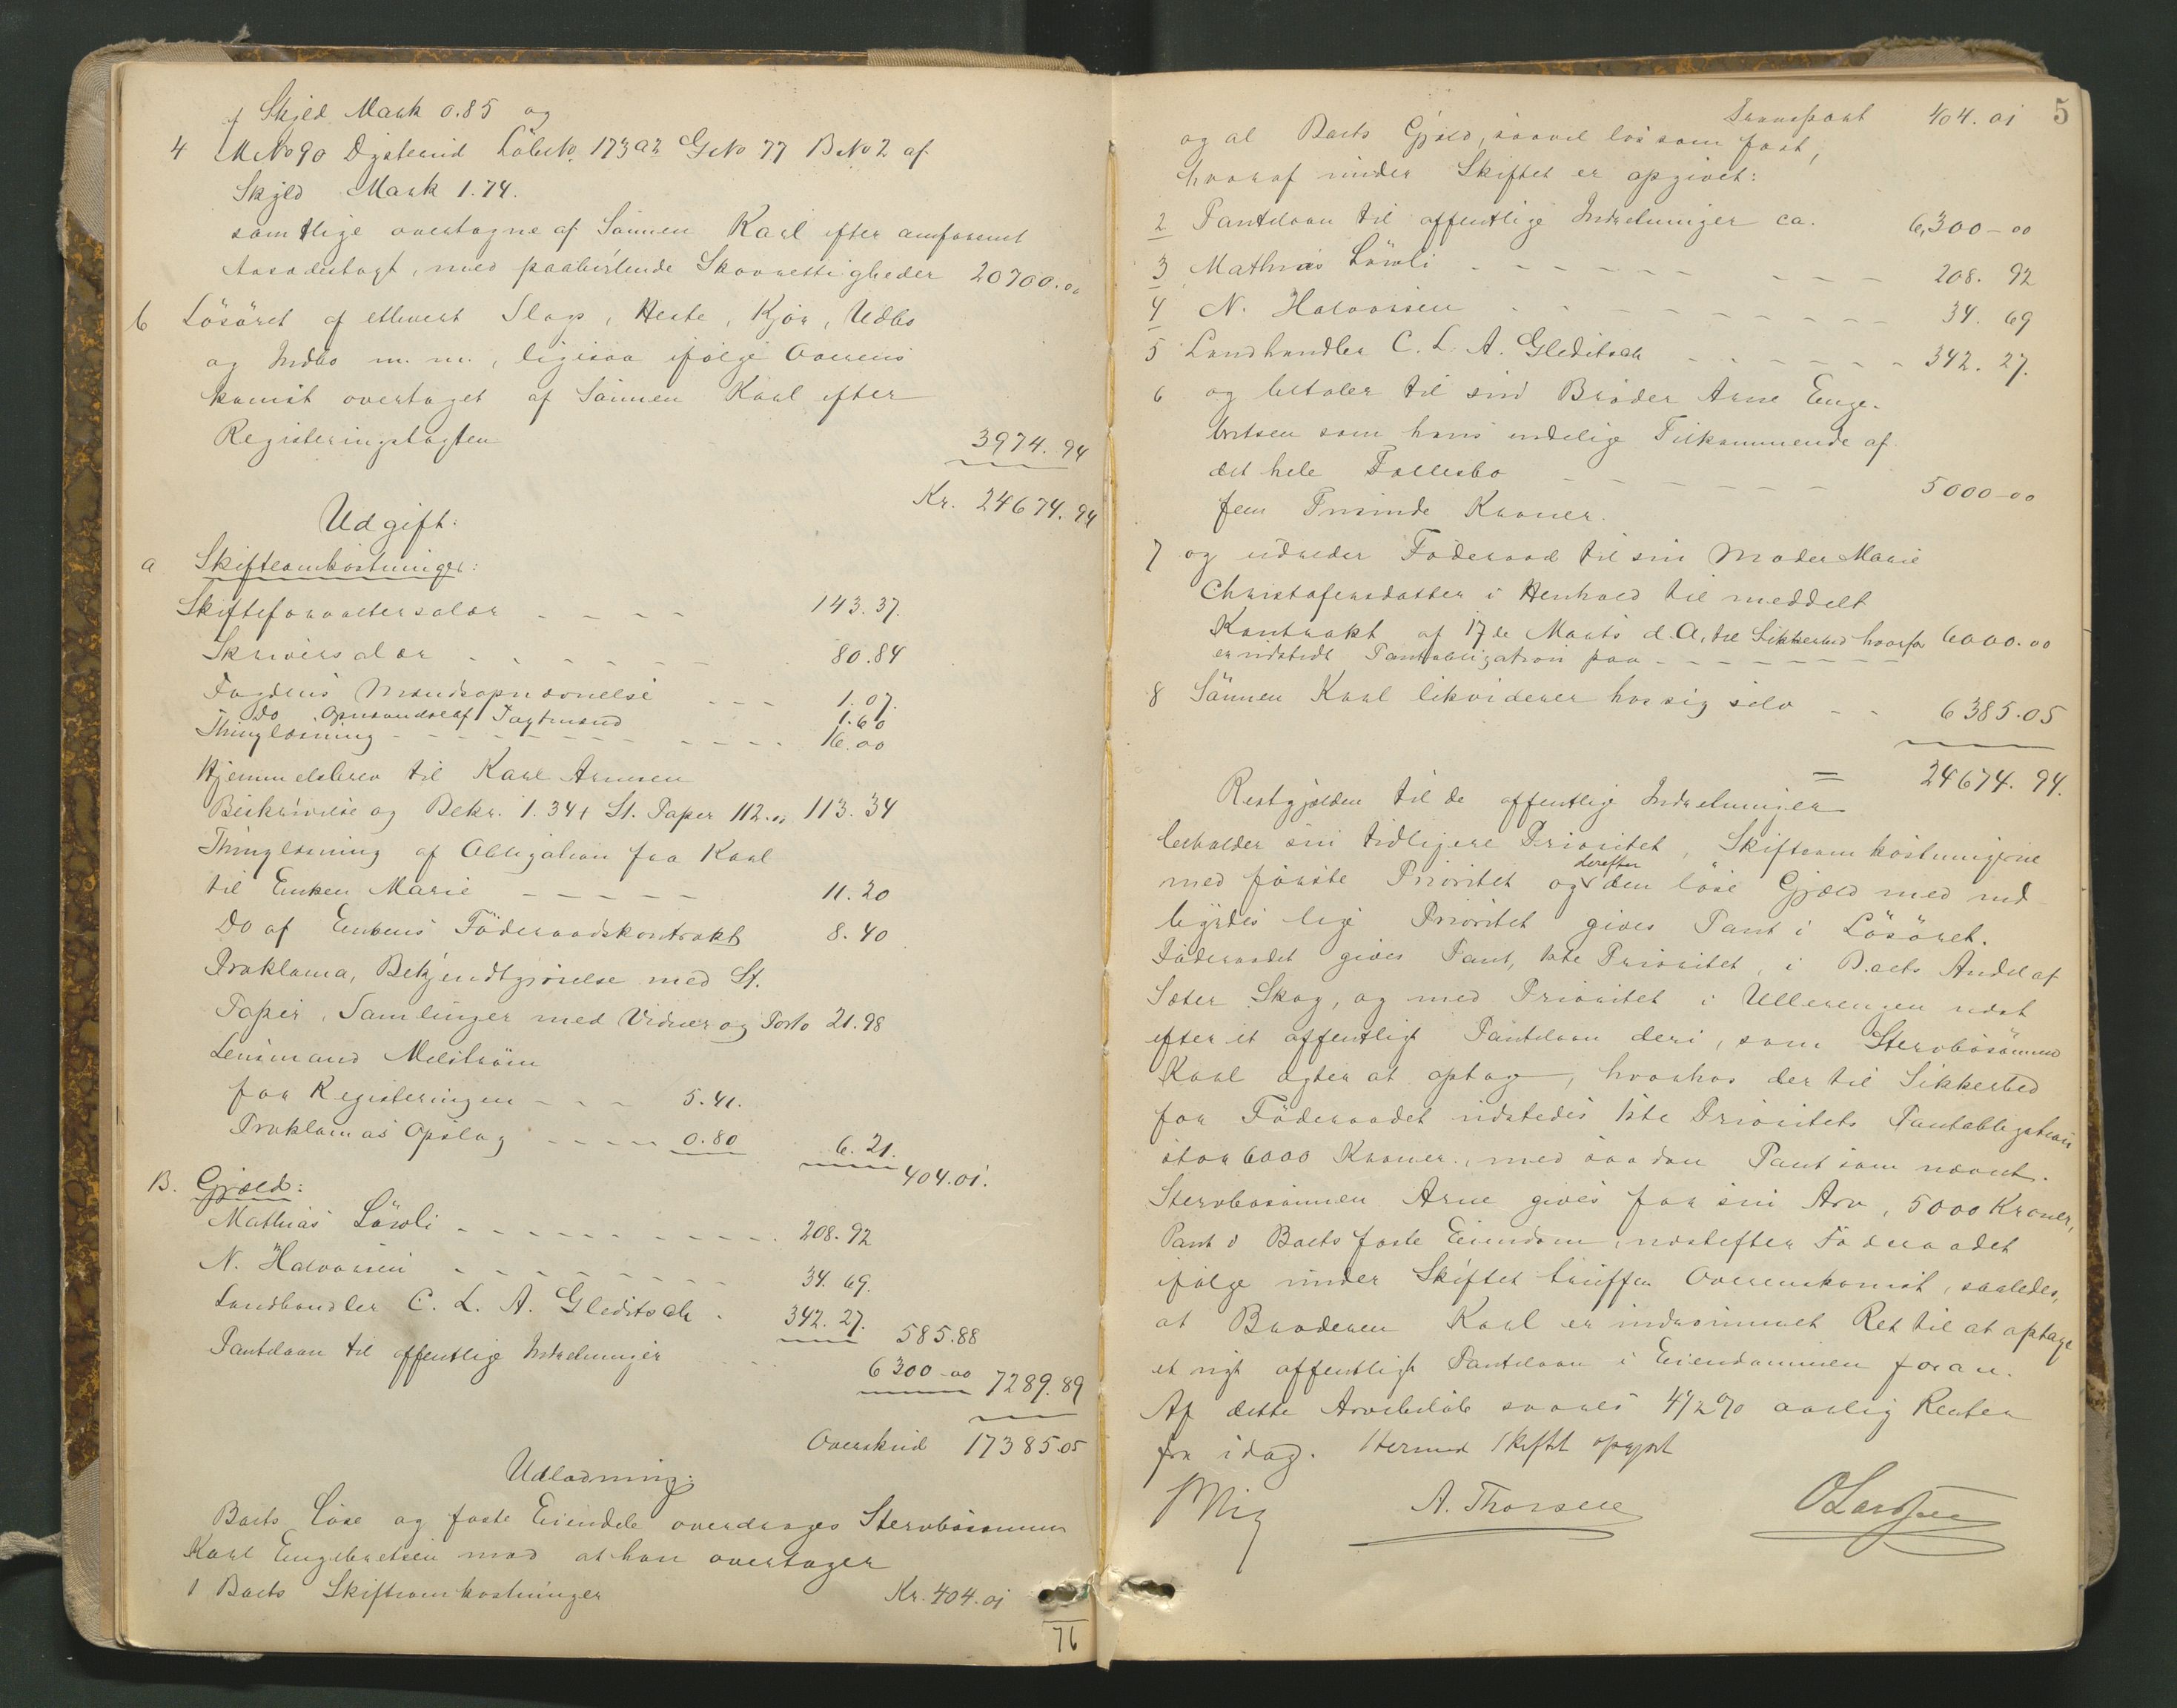 af Skjld Mark 0.85 og
4 MNo 90 Dysterud LöbeNo 173a2 GNo 77 BNo 2 af
Skyld Mark 1.74.
samtlige overtagne af Sönnen Karl efter anförent
Aasædestagt, med paahvilende Skovrettigheder 20700.00
b Lösöret af ethvert Slags, Heste, Kjör, Udbo
og Indbo m. m., ligesaa ifölge Overens
komst overtaget af Sönnen Karl efter
Registeringstagten 3974.94
Kr. 24674.94
Udgift:
a Skifteomkostninger:
Skifteforvaltersalær - - - - 143.37.
Skriversalær - - - - - - 80.84
Fogdens Mandsopnævnelse - - - 1.07.
Do Opnævndse af Tagtmænd 1.60
Thinglæsning - - - - - - 16.00
Hjemmelsbrev til Karl Arnesen
Beskrivelse og Bekr. 1.34 + St. Papir 112.00 113.34
Thinglæsning af Obligation fra Karl
til Enken Marie - - - - - 11.20
Do af Enkens Föderaadskontrakt 8.40
Proklama, Bekjendtgjörelse med St.
Papir, Samlinger med Vidner og Porto 21.98
Lensmand Melström
for Registeringen - - - 5.41.
Proklamas Opslag - - - - 0.80 6.21.
404.01.
B. Gjæld:
Mathias Lövli - - - - - - - - 208.92
N. Halvorsen - - - - - - - 34.69.
Landhandler C. L. A. Gleditsch - 342.27. 585.88
Pantelaan til offentlige Indretninger - - 6300-00 7289.89
Overskud 17385.05
Udlodning:
Boets löse og faste Eiendele overdrages Stervbosönnen
Karl Engebretsen mod at han overtager
1 Boets Skifteomkostninger Kr. 404.01
76
5
Transport 404.01
og al Boets Gjæld, saavel lös som fast,
hvoraf under Skiftet er opgivet:
2 Pantelaan til offentlige Indretninger ca. 6,300-00
3 Mathias Lövli - - - - - - - - - 208.92
4 N. Halvorsen - - - - - - - - - 34.69
5 Landhandler C. L. A. Gleditsch - - - - - - 342.27.
6 og betaler til sin Broder Arne Enge-
bretsen som hans endelige Tilkommende af
det hele Fællesbo - - - - - - 5000-00
fem Tusinde Kroner.
7 og udreder Föderaad til sin Moder Marie
Christofersdatter i Henhold til meddelt
Kontrakt af 17de Marts d. A, til Sikkerhed hvorfor 6000.00
er udstedt Pantobligation paa - - - - - - -
8 Sönnen Karl likviderer hos sig selv - - 6385.05
= 24674.94.
Restgjælden til de offentlige Indretninger
beholder sin tidligere Prioritet, Skifteomkostningerne
med förste Prioritet og derefter den löse Gjæld med ind-
byrdes lige Prioritet gives Pant i Lösöret.
Föderaadet gives Pant, 1ste Prioritet, i Boets Andel af
Sæter Skog, og med Prioritet i Ullerengen næst
efter et offentligt Pantelaan deri, som Stervbosönnen
Karl agter at optage, hvorhos der til Sikkerhed
for Föderaadet udstedes 1ste Prioritets Pantobligation
stor 6000 Kroner, med saadan Pant som nævnt.
Stervbosönnen Arne gives for sin Arv, 5000 Kroner,
Pant i Boets faste Eiendom, næstefter Föderaadet
ifölge under Skiftet truffen Overenskomst, saaledes,
at Broderen Karl er indrömmet Ret til at optage
et nyt offentligt Pantelaan i Eiendommen foran.
Af dette Arvebelöb svares 4 1/2 % aarlig Renter
fra idag. Hermed Skiftet opgjort
A. Thorsen OLarssen